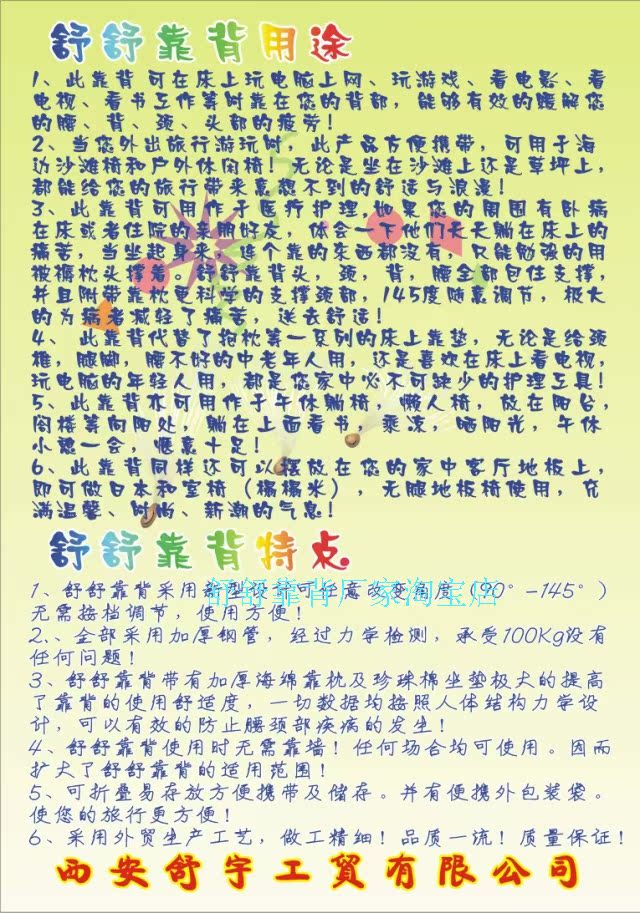 舒舒靠背用途
1、此靠背可在床上玩电脑上网、玩游戏、看电影、看
电视、看书工作等时靠在您的背部，能够有效的缓解您
的腰、背、颈、头部的疲劳！
2、当您外出旅行游玩时，此产品方便携带，可用于海
边沙滩椅和户外休闲椅！无论是坐在沙滩上还是草坪上，
都能给您的旅行带来意想不到的舒适与浪漫！
3、此靠背可用作于医疗护理，如果您的周围有卧病
在床或者住院的亲朋好友，体会一下他们天天躺在床上的
痛苦，当坐起身来，连个靠的东西都没有，只能勉强的用
被褥枕头撑着。舒舒靠背头，颈，背，腰全部包住支撑，
并且附带靠枕更科学的支撑颈部，145度随意调节，极大
的为病者减轻了痛苦，送去舒适！
4、此靠背代替了抱枕等一系列的床上靠垫，无论是给颈
椎，腿脚，腰不好的中老年人用，还是喜欢在床上看电视，
玩电脑的年轻人用，都是您家中必不可缺少的护理工具！
5、此靠背亦可用作于午休躺椅，懒人椅，放在阳台，
阁楼等向阳处，躺在上面看书，乘凉，晒阳光，午休
小憩一会，惬意十足！
6、此靠背同样还可以摆放在您的家中客厅地板上，
即可做日本和室椅（榻榻米），无腿地板椅使用，充
满温馨、时尚、新潮的气息！
舒舒靠背特点
1、舒舒靠背采用新型设计可任意改变角度（90°-145°）
舒舒靠背厂家淘宝店
无需按档调节，使用方便！
2、、全部采用加厚钢管，经过力学检测，承受100Kg没有
任何问题！
3、舒舒靠背带有加厚海绵靠枕及珍珠棉坐垫极大的提高
了靠背的使用舒适度，一切数据均按照人体结构力学设
计，可以有效的防止腰颈部疾病的发生！
4、舒舒靠背使用时无需靠墙！任何场合均可使用。因而
扩大了舒舒靠背的适用范围！
5、可折叠易存放方便携带及储存。并有便携外包装袋。
使您的旅行更方便！
6、采用外贸生产工艺，做工精细！品质一流！质量保证！
西安舒宇工贸有限公司